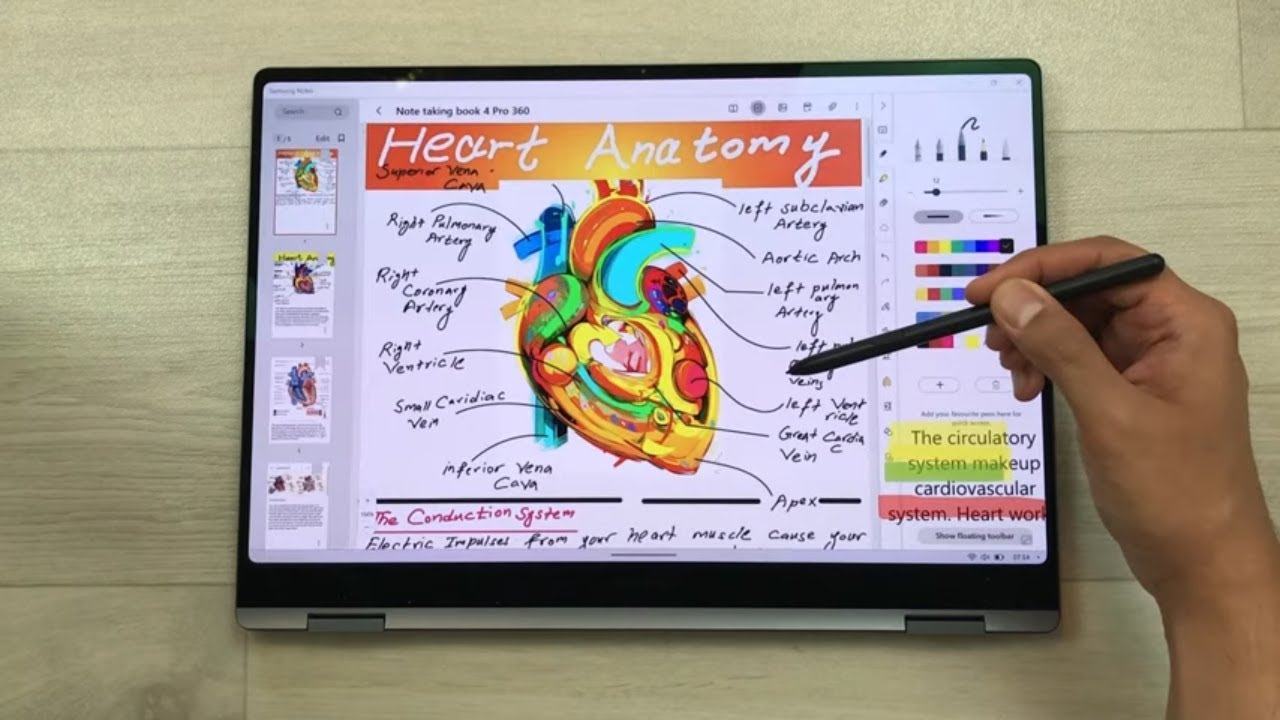 Samsung Notes
Search
Note taking book 4 Pro 360
/5
Edit
Heart Anatomy
Heart An
Superior Vena
Cava
Right Pulmonary
Artery
Right
Coronary
Artery
Right
Ventricle
Small Caridiac
Vein
inferior Vena
Cava
left subclavian
Artery
Aortic Arch
left pulmon
ary
Artery
left
Veins
left Vent
ricle
Great Cardia
c
Vein
Apex
The Conduction System
Electric Impulses from your heart muscle cause your
12
Add your favourite pens here for
quick access.
The circulatory
system makeup
cardiovascular
system. Heart work
Show floating toolbar
07:54